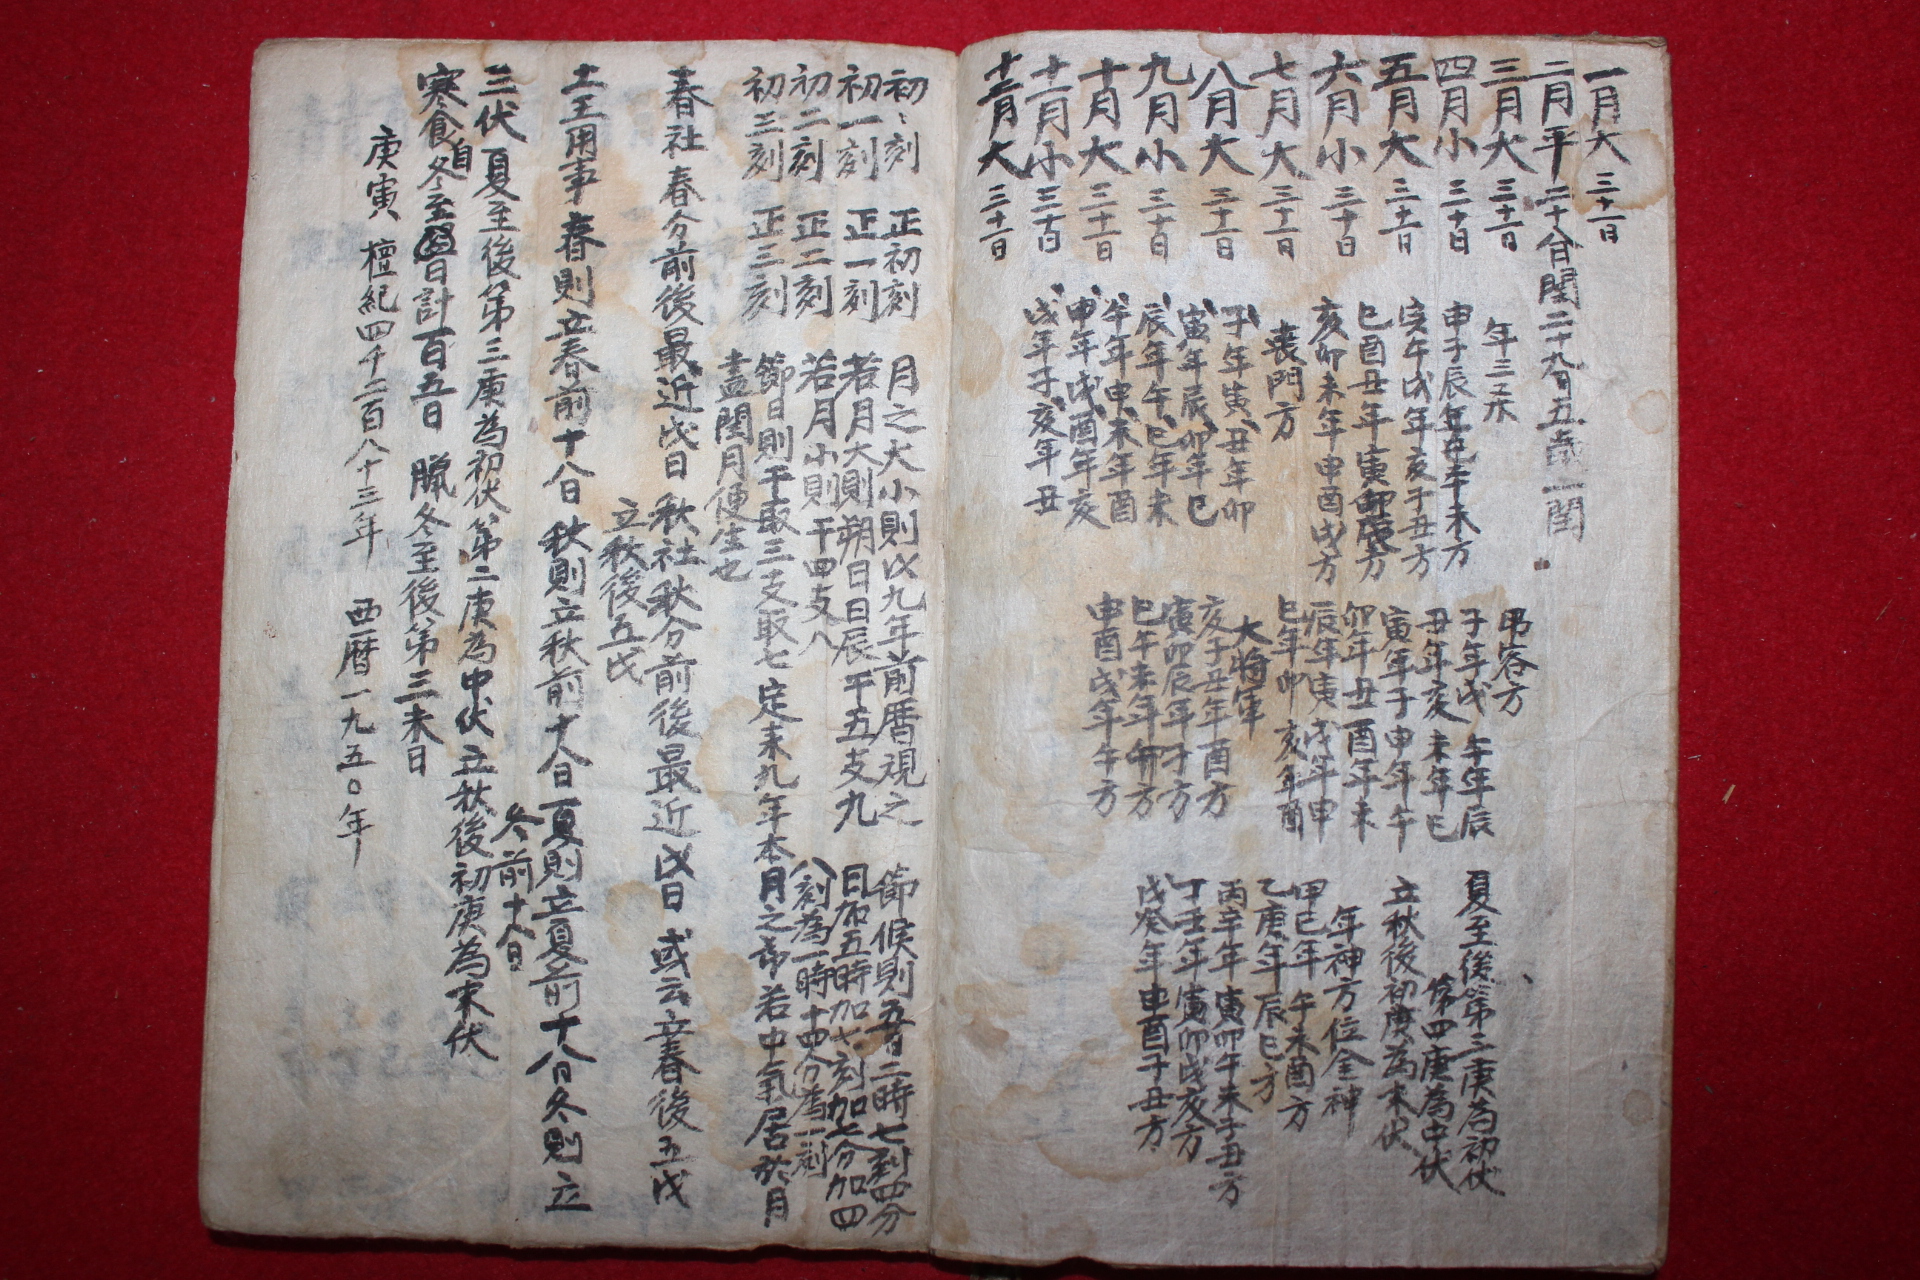 一月大 三十一日
二月平 二十八日閏二十九日五歲一閏
三月大 三十一日
四月小 三十日
五月大 三十一日
六月小 三十日
七月大 三十一日
八月大 三十一日
九月小 三十日
十月大 三十一日
十一月小 三十日
十二月大 三十一日
年三杀
申子辰年巳午未方
寅午戌年亥子丑方
巳酉丑年寅卯辰方
亥卯未年申酉戌方
喪門方
子年寅丑年卯
寅年辰卯年巳
辰年午巳年未
午年申未年酉
申年戌酉年亥
戌年子亥年丑
吊客方
子年戌 午年辰
丑年亥 未年巳
寅年子申年午
卯年丑酉年未
辰年寅戌年申
巳年卯 亥年酉
大將軍
亥子丑年酉方
寅卯辰年子方
巳午未年卯方
申酉戌年午方
夏至後第三庚為初伏
第四庚為中伏
立秋後初庚為末伏
年神方位金神
甲己年 午未酉方
乙庚年辰巳方
丙辛年寅卯午未子丑方
丁壬年寅卯戌亥方
戊癸年申酉子丑方
初初刻 正初刻
初一刻 正一刻
初二刻 正二刻
初三刻 正三刻
月之大小則以九年前曆視之
若月大則朔日日辰干五支九
若月小則干四支八
節日則干取三支取七定未九年本月之節若中氣居於月
盡閏月便生也
節候則五日二時七刻四分
日加五時加七刻加七分加四
八刻為一時十四分為一刻
春社 春分前後最近戊日 秋社 秋分前後最近戊日 或云立春後五戊
立秋後五戊
土王用事 春則立春前十八日 秋則立秋前十八日夏則立夏前十八日冬則立
冬前十八日
三伏 夏至後第三庚為初伏 第二庚為中伏 立秋後初庚為末伏
寒食自冬至日計百五日 臘冬至後第三未日
庚寅 檀紀四千二百八十三年 西曆一九五〇年